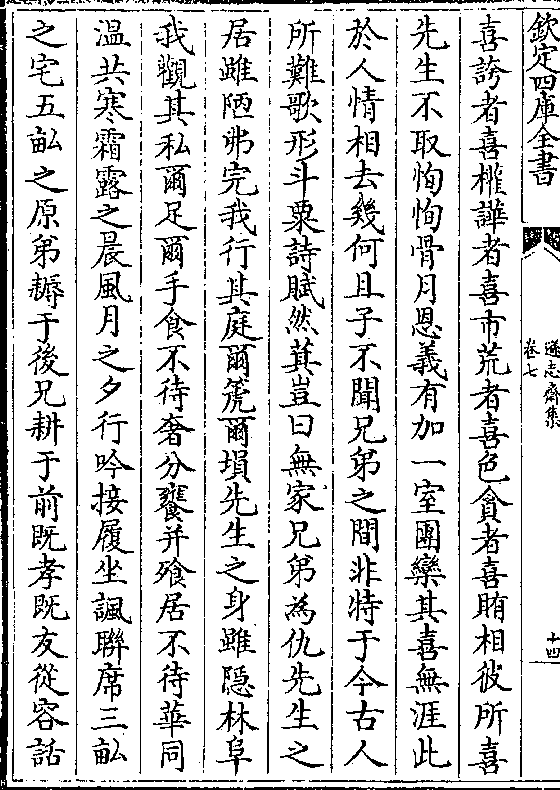 欽定四庫全書
遜志齋集
卷七
十四
喜誇者喜權譁者喜市荒者喜色貪者喜賄相彼所喜
先生不取恂恂骨月恩義有加一室團欒其喜無涯此
於人情相去幾何且子不聞兄弟之間非特于今古人
所難歌形斗粟詩賦然萁豈曰無家兄弟為仇先生之
居雖陋弗完我行其庭爾箎爾塤先生之身雖隠林阜
我觀其私爾足爾手食不待奢分饔并飱居不待華同
溫共寒霜露之晨風月之夕行吟接履坐諷聯席三畝
之宅五畝之原弟耨于後兄耕于前既孝既友從容話